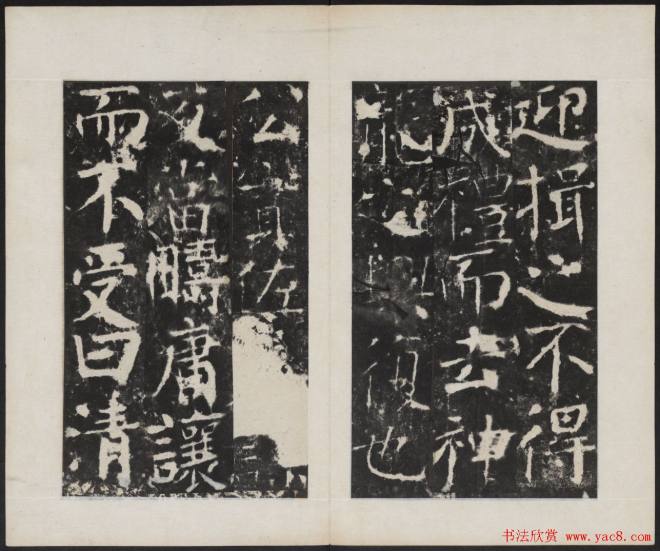 迎揖之不得
成禮而去神
復也
公實佐
又當疇庸讓
而不受曰清
书法欣赏 www.yac8.com